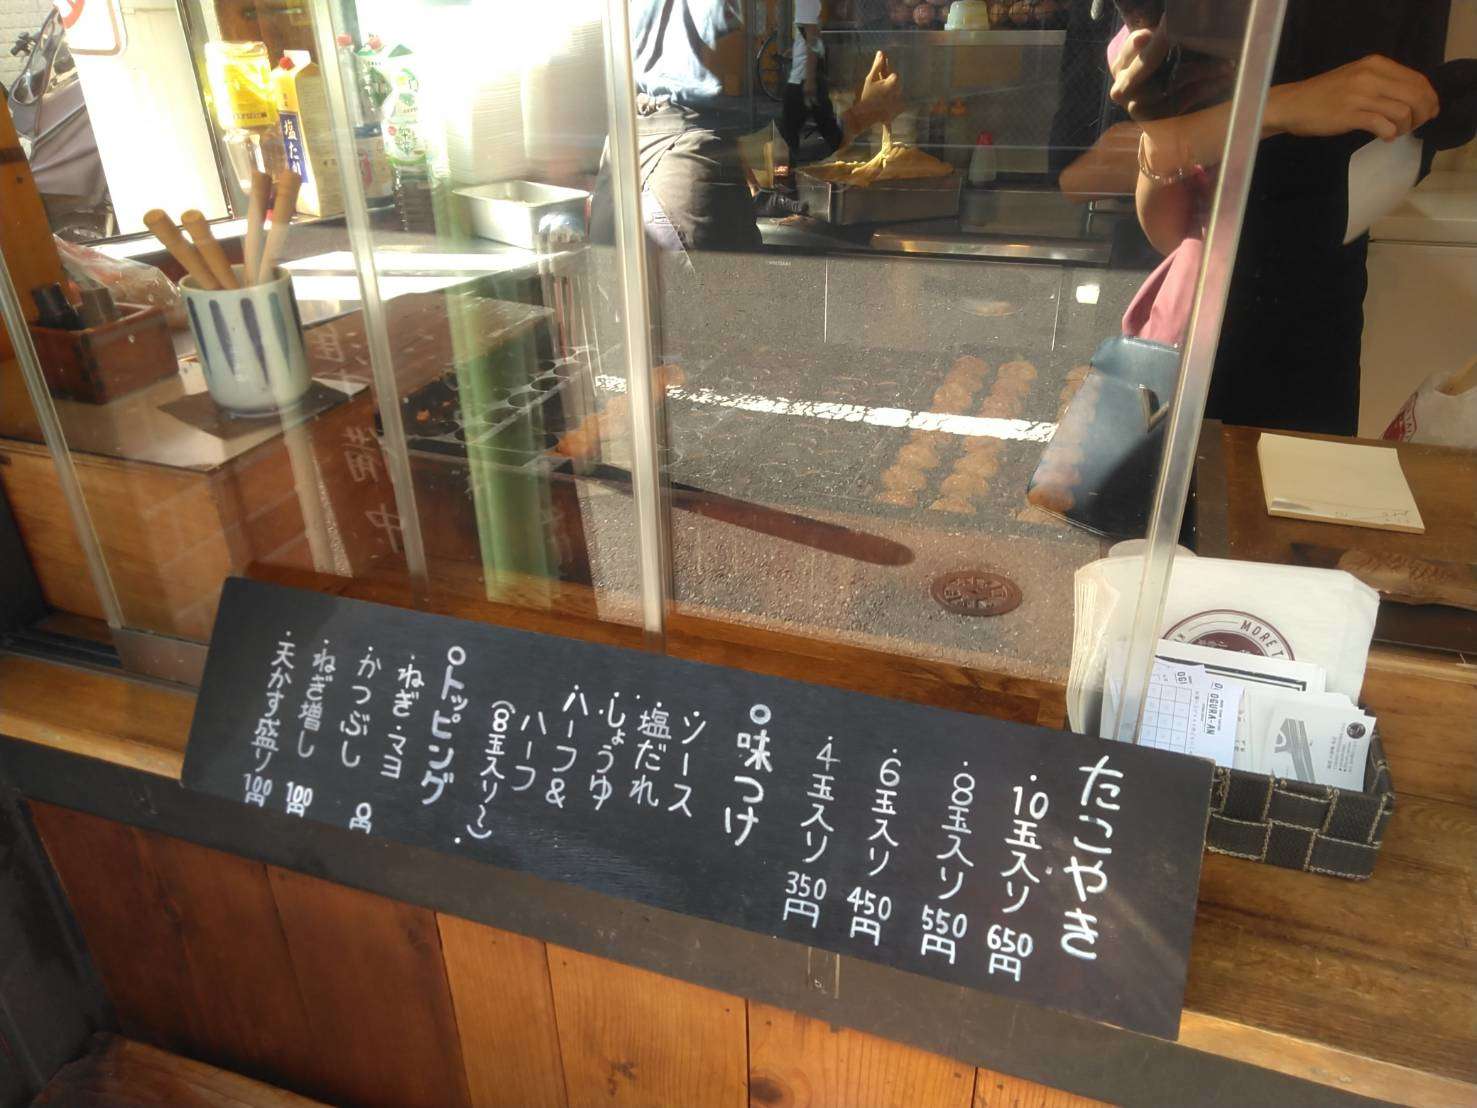 たこやき
・10玉入り 650円
・8玉入り 550円
・6玉入り 450円
・4玉入り 350円
○味つけ
・ソース
・塩だれ
・しょうゆ
・ハーフ&
ハーフ
(8玉入り〜)
○トッピング
・ねぎ・マヨ
・かつぶし 0円
・ねぎ増し 100円
・天かす盛り 100円
準備中
塩だれ
MORE T
OGURA-AN